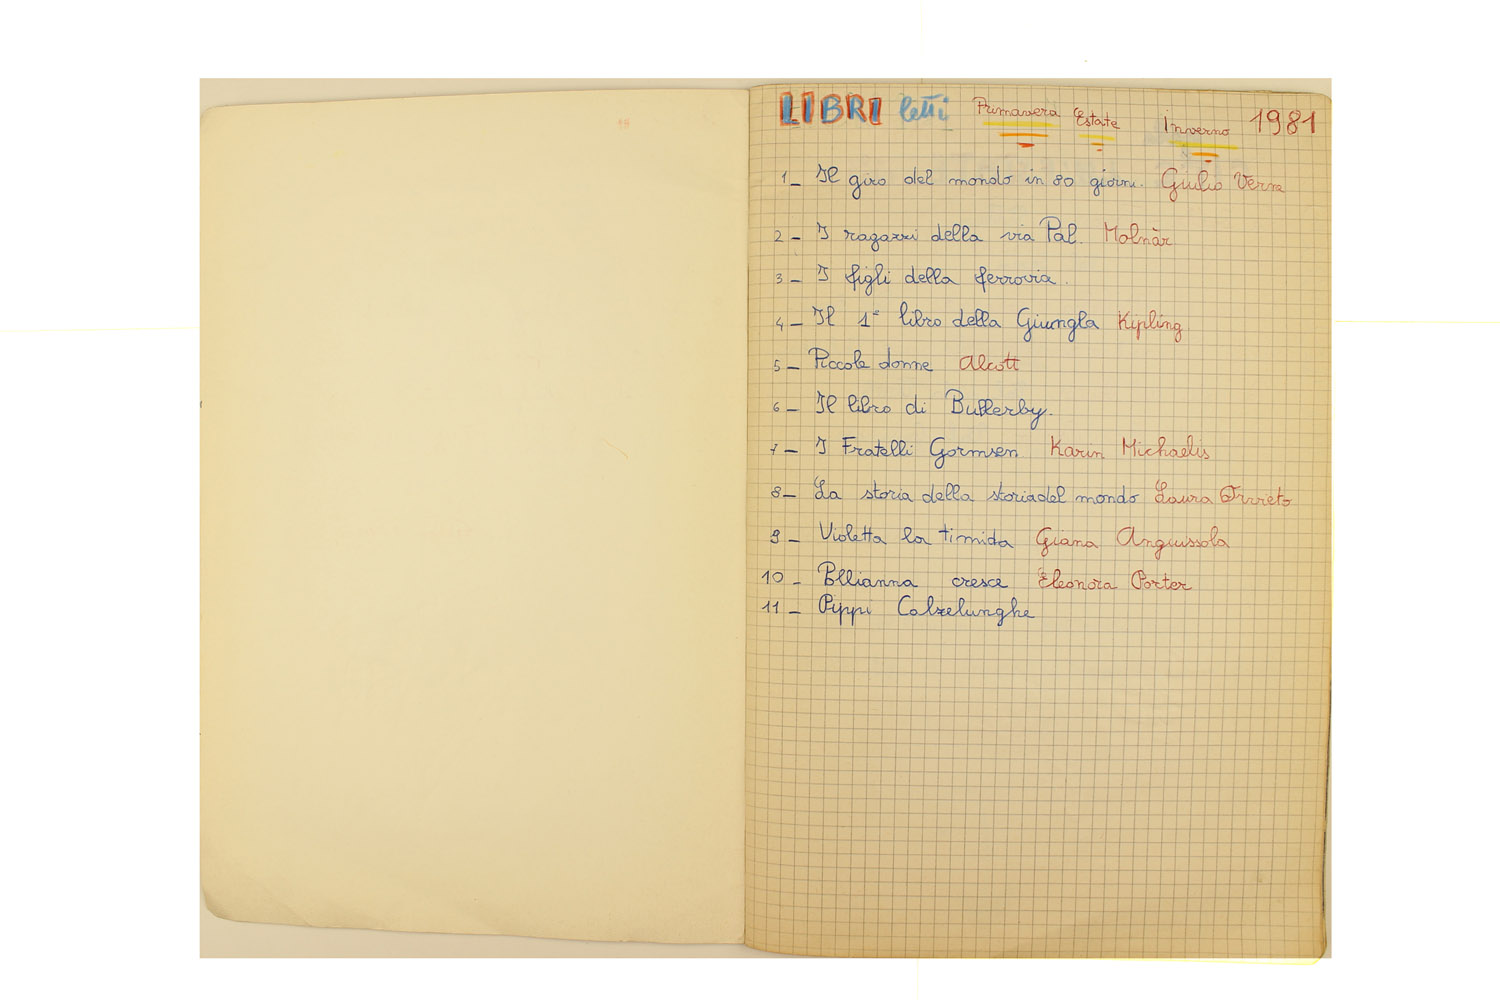 LIBRI letti Primavera Estate Inverno 1981
1_ Il giro del mondo in 80 giorni. Giulio Verne
2_ I ragazzi della via Pal. Molnàr
3_ I figli della ferrovia.
4_ Il 1° libro della Giungla Kipling
5_ Piccole donne Alcott
6_ Il libro di Bullerby.
7_ I Fratelli Gormsen Karin Michaelis
8_ La storia della storia del mondo Laura Orvieto
9_ Violetta la timida Giana Anguissola
10_ Pollianna cresce Eleonora Porter
11_ Pippi Calzelunghe